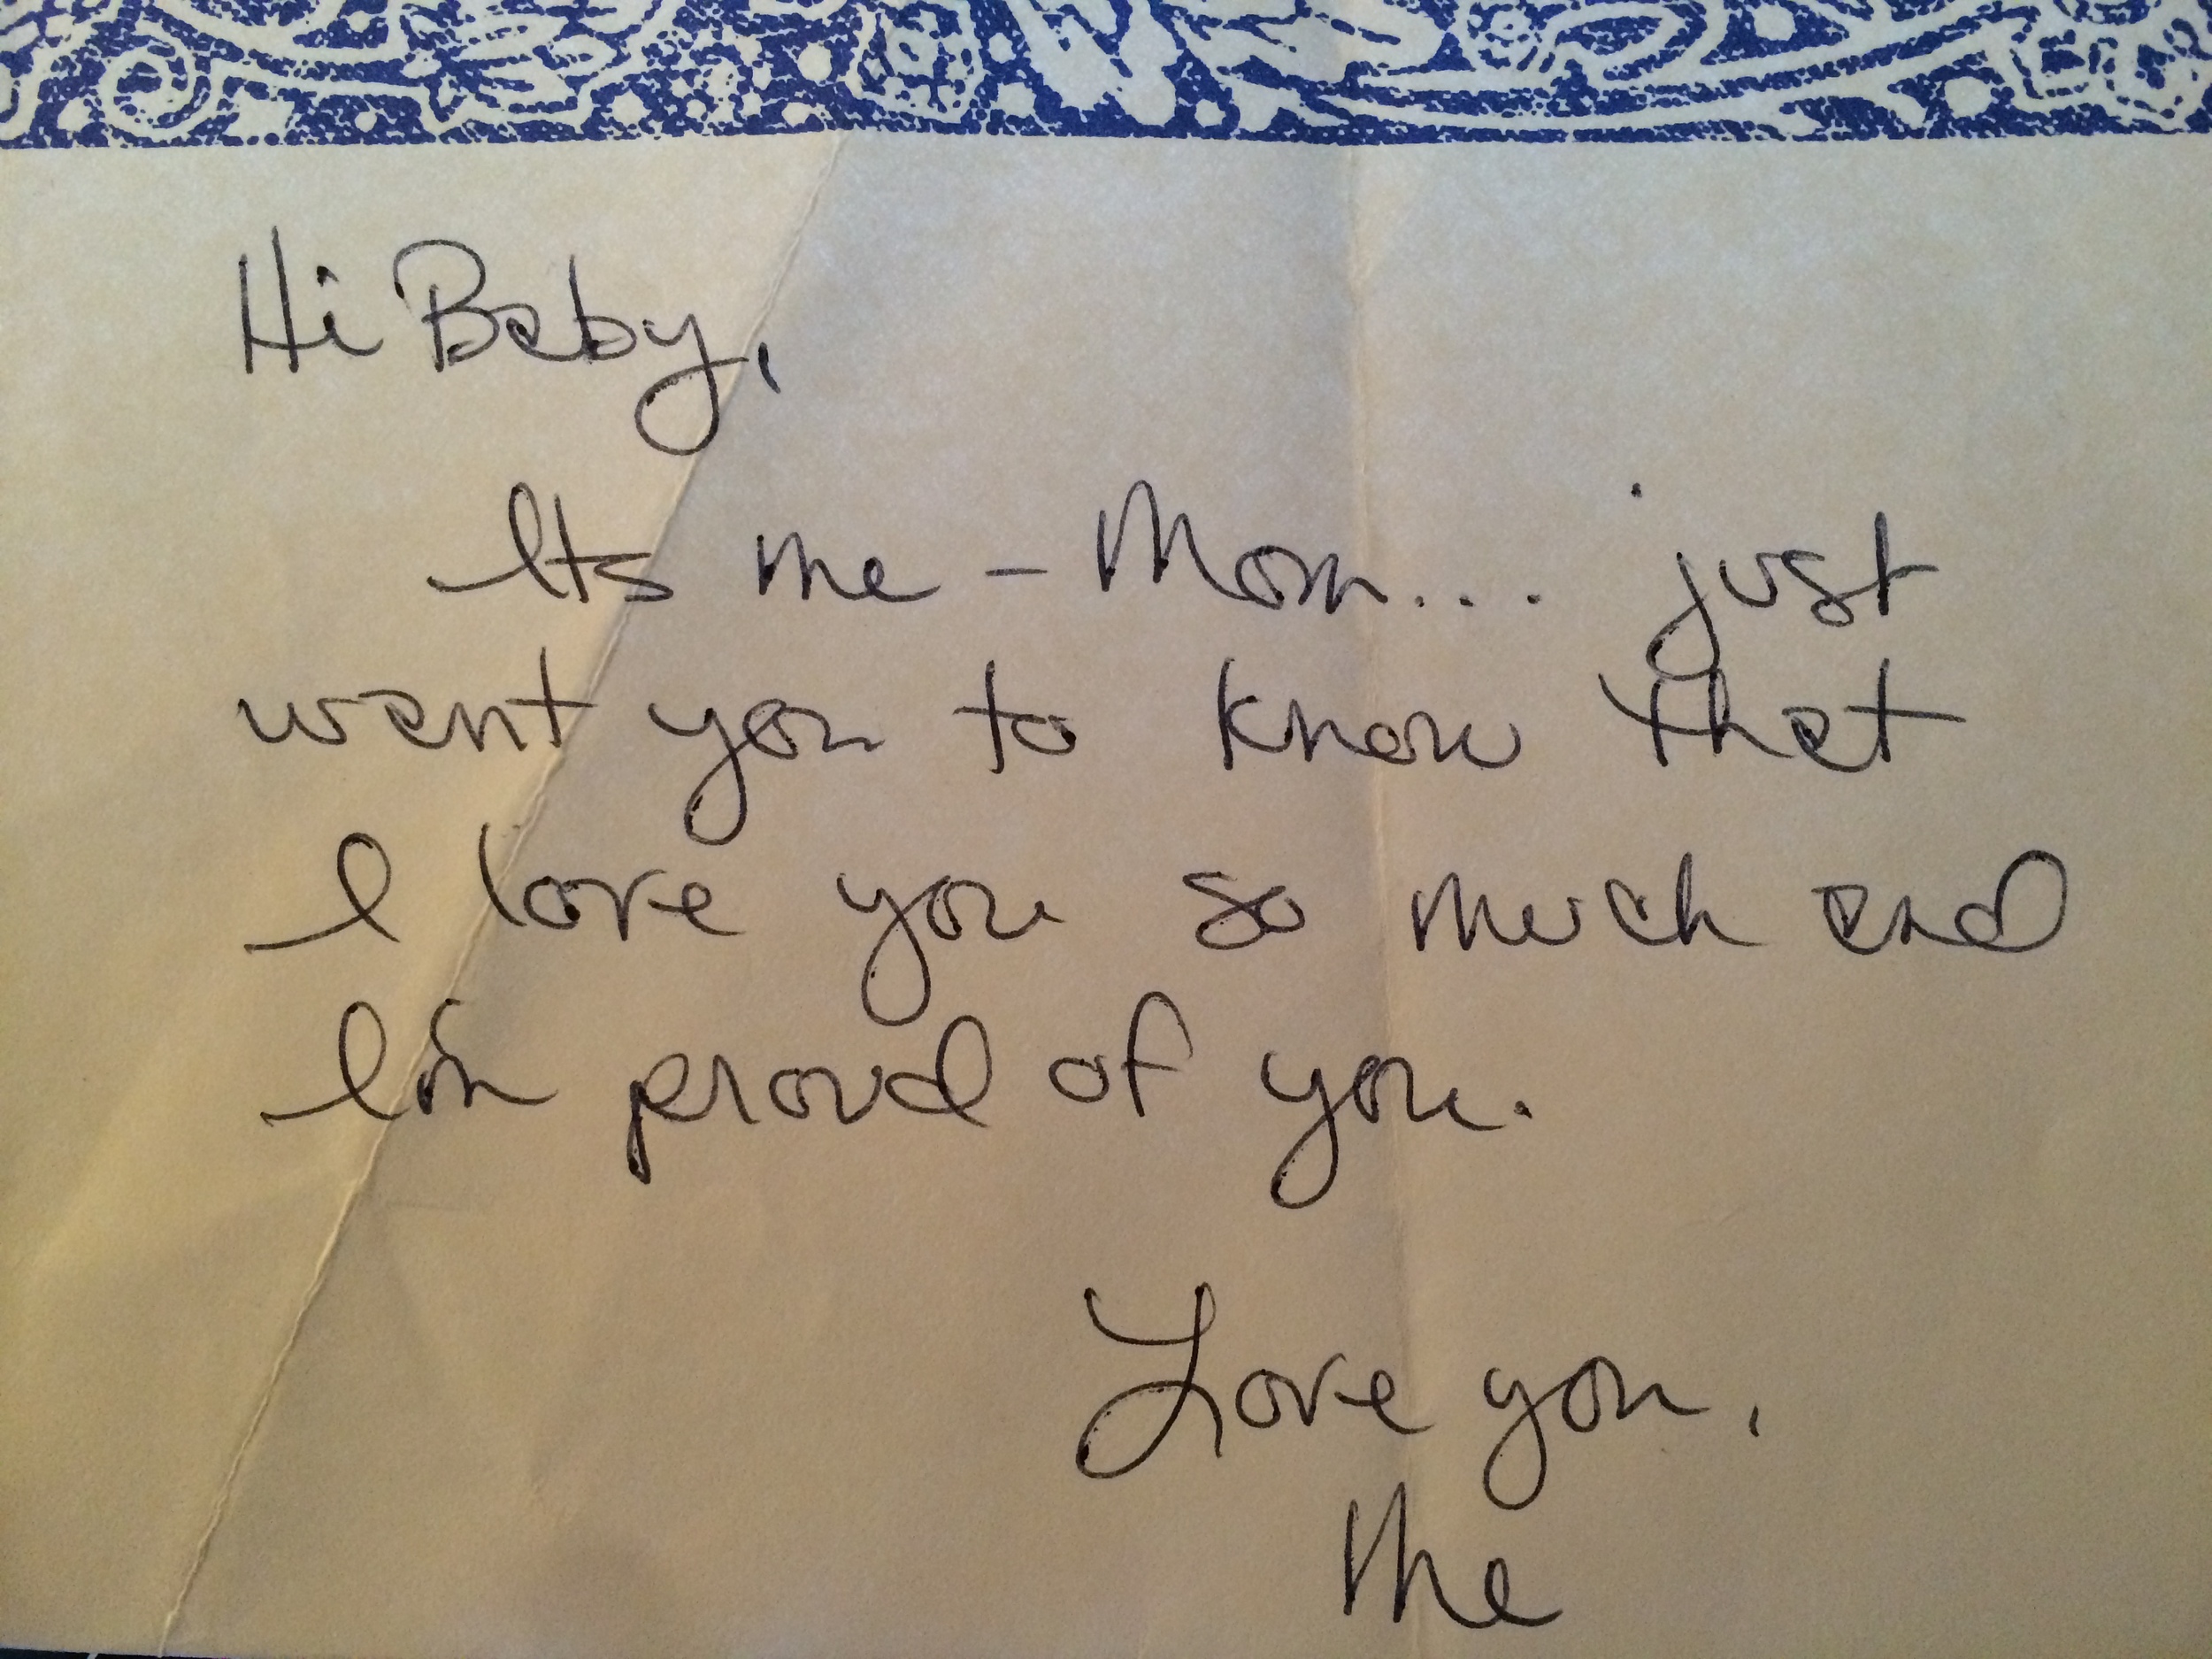 Hi Baby,
Its me - Mom... just
want you to know that
I love you so much and
I'm proud of you.
Love you,
Me